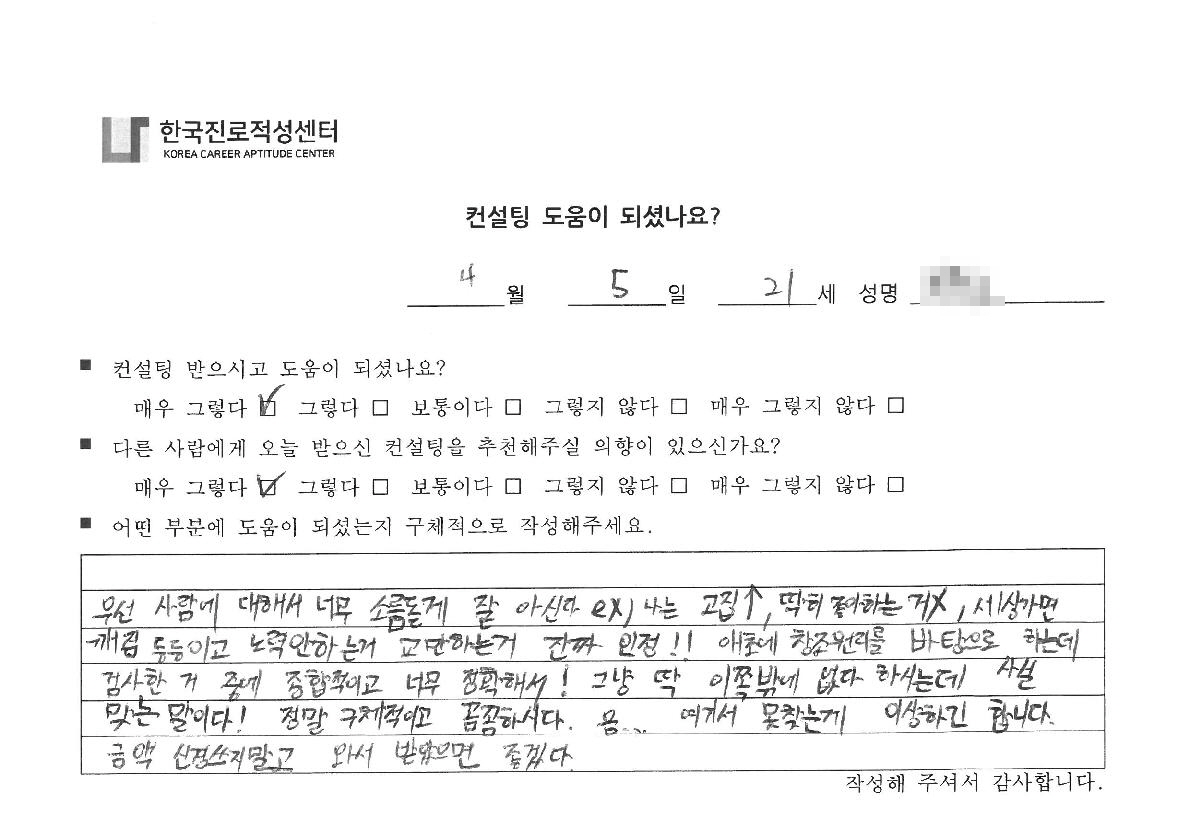 한국진로적성센터
KOREA CAREER APTITUDE CENTER
컨설팅 도움이 되셨나요?
4 월 5 일 21 세 성명
■ 컨설팅 받으시고 도움이 되셨나요?
매우 그렇다 ☑ 그렇다 □ 보통이다 □ 그렇지 않다 □ 매우 그렇지 않다 □
■ 다른 사람에게 오늘 받으신 컨설팅을 추천해주실 의향이 있으신가요?
매우 그렇다 ☑ 그렇다 □ 보통이다 □ 그렇지 않다 □ 매우 그렇지 않다 □
■ 어떤 부분에 도움이 되셨는지 구체적으로 작성해주세요.
우선 사람에 대해서 너무 소름돋게 잘 아신다 ex) 나는 고집↑, 딱히 좋아하는 거X, 세상가면
깨짐 등등이고 노력안하는거 교만하는거 진짜 인정!! 애초에 창조원리를 바탕으로 하는데
검사한 거 중에 종합적이고 너무 정확해서! 그냥 딱 이쪽밖에 없다 하시는데 사실
맞는 말이다! 정말 구체적이고 꼼꼼하시다. 음... 여기서 못찾는게 이상하긴 합니다.
금액 신경쓰지말고 와서 받았으면 좋겠다.
작성해 주셔서 감사합니다.